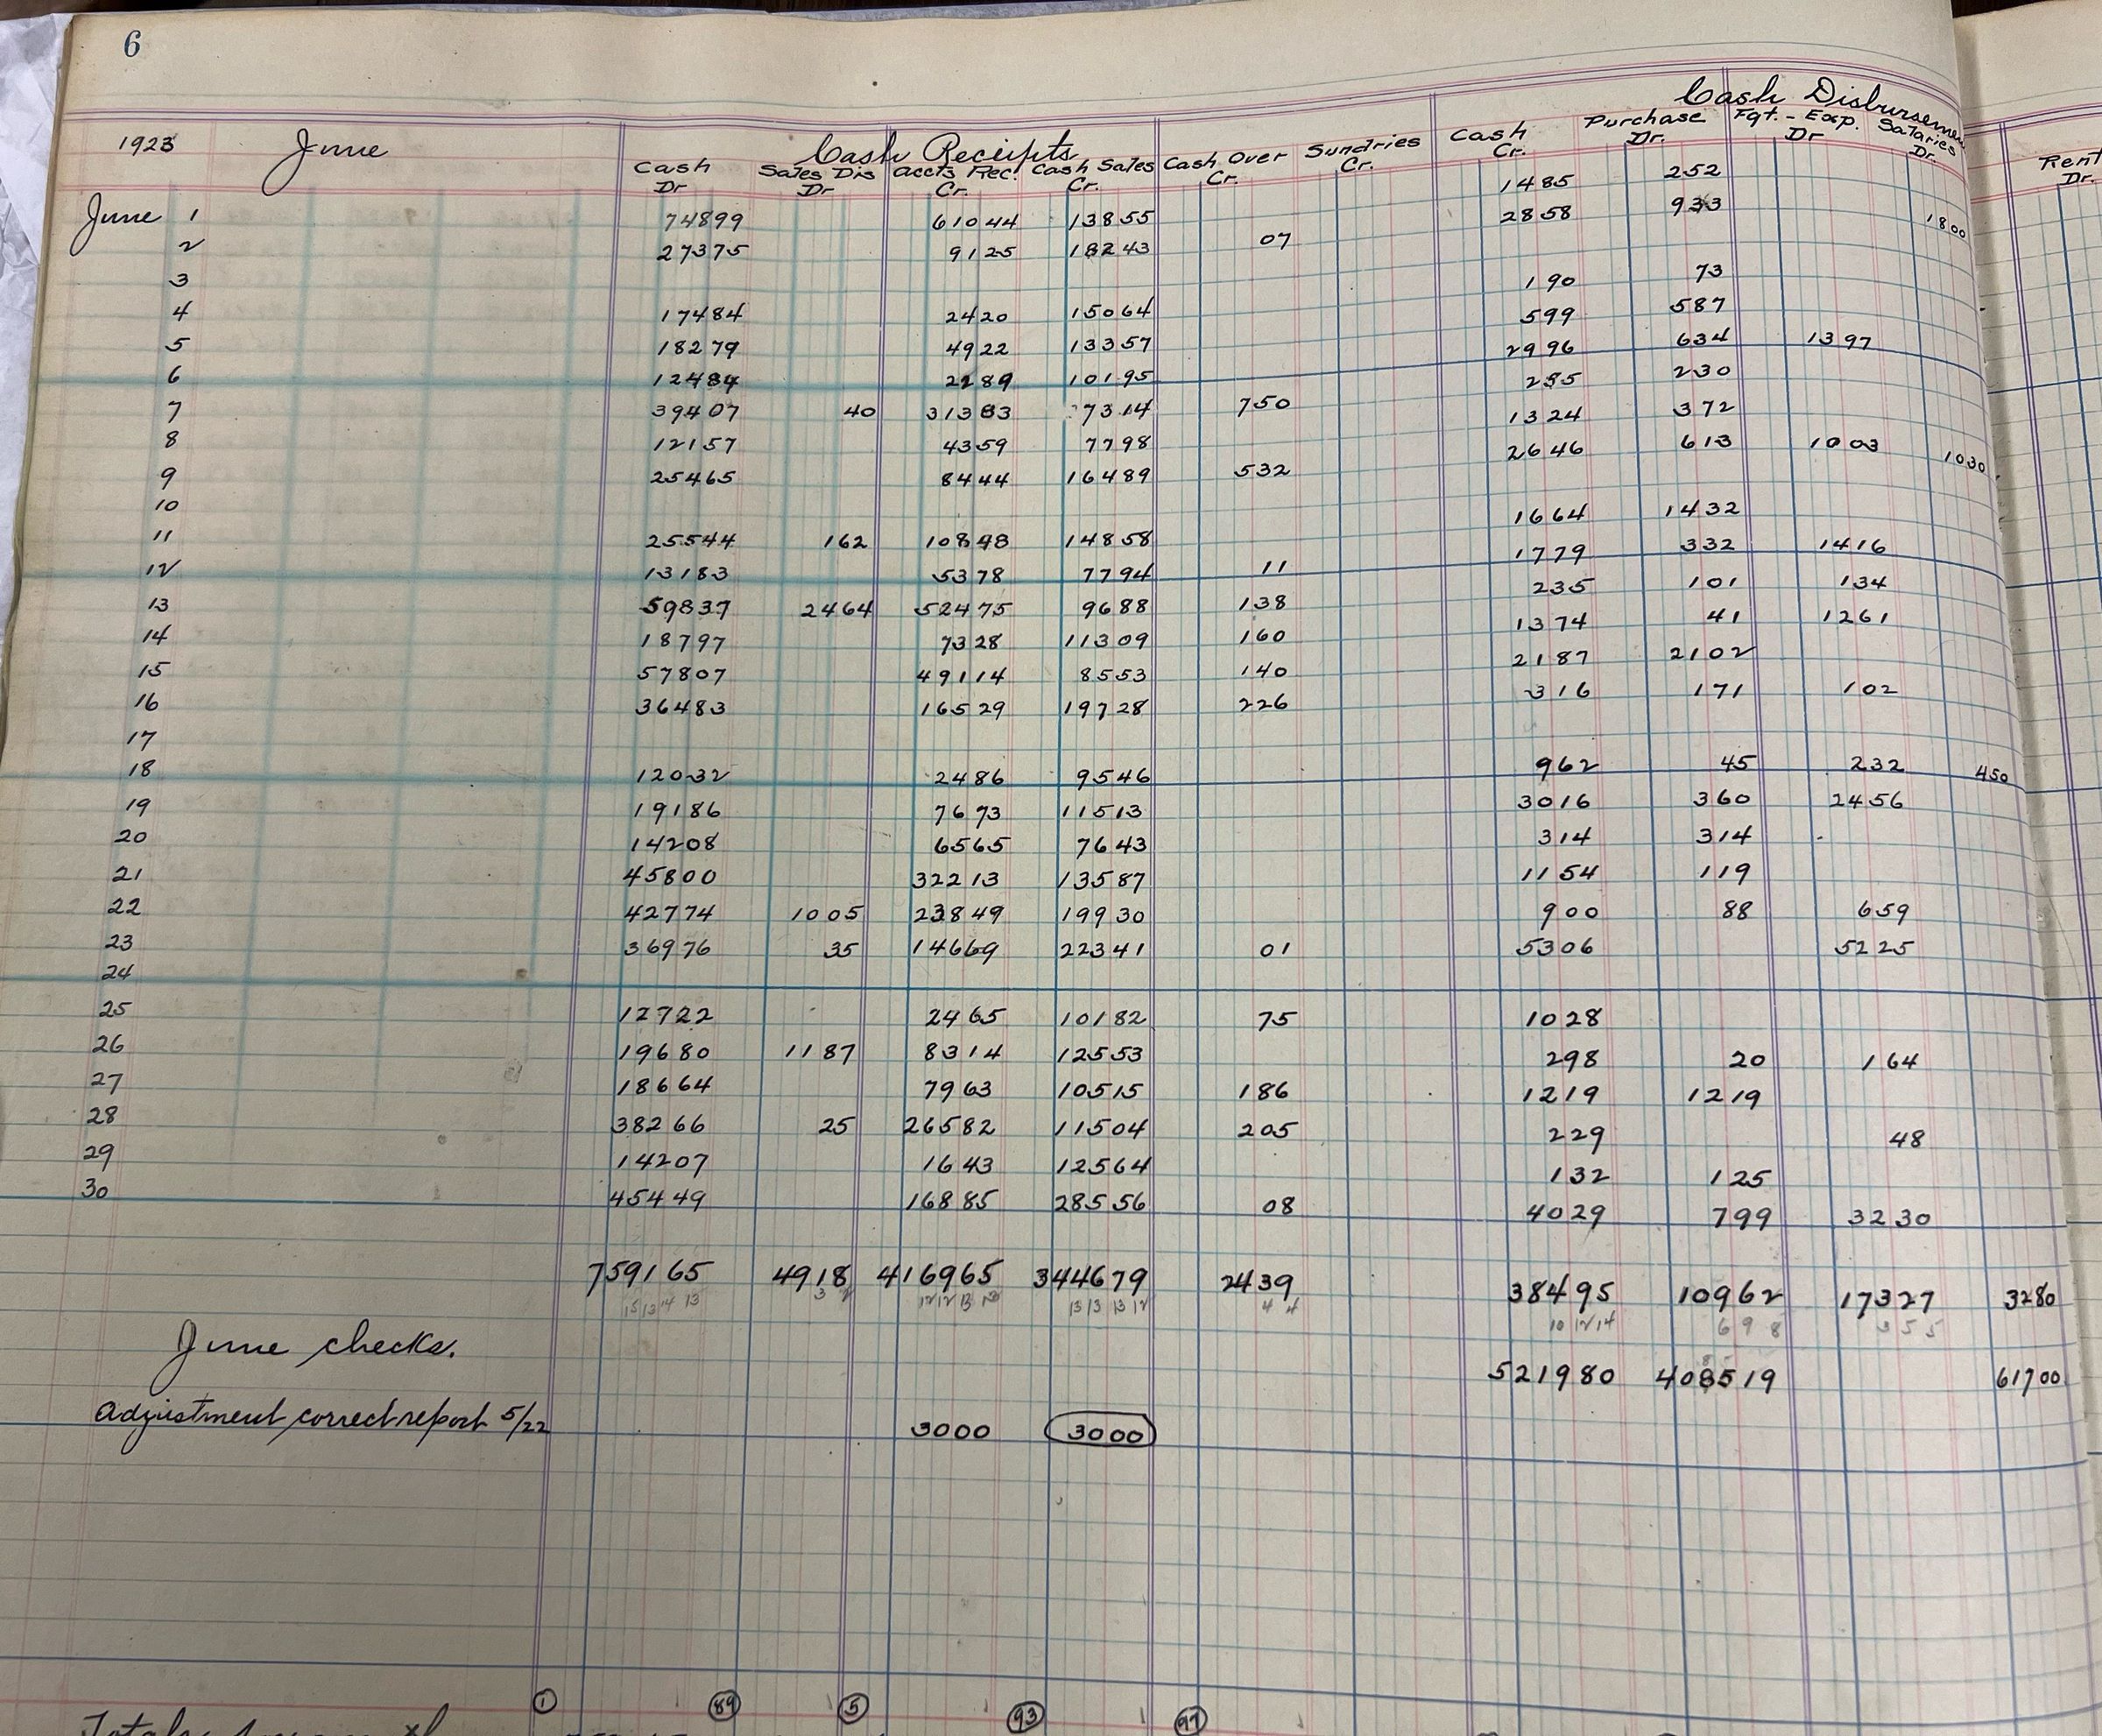 6
1923 June Cash Receipts Cash Disbursemen
Cash Dr Sales Dis Dr Accts Rec. Cr. Cash Sales Cr. Cash Over Cr. Sundries Cr. Cash Cr. Purchase Dr. Fgt. - Exp. Dr Salaries Dr. Rent Dr.
June 1 74899 61044 13855 1485 252
2 27375 9125 18243 07 2858 933 1800
3
4 17484 2420 15064 190 73
5 18279 4922 13357 599 587
6 12484 2289 10195 2996 634 1397
7 39407 40 31383 7314 750 255 230
8 12157 4359 7798 1324 372
9 25465 8444 16489 532 2646 613 1003 1030
10
11 25544 162 10848 14858 1664 1432
12 13183 5378 7794 11 1779 332 1416
13 59837 2464 52475 9688 138 235 101 134
14 18797 7328 11309 160 1374 41 1261
15 57807 49114 8553 140 2187 2102
16 36483 16529 19728 226 316 171 102
17
18 12032 2486 9546 962 45 232 450
19 19186 7673 11513 3016 360 2456
20 14208 6565 7643 314 314
21 45800 32213 13587 1154 119
22 42774 1005 23849 19930 900 88 659
23 36976 35 14669 22341 01 5306 5225
24
25 12722 2465 10182 75 1028
26 19680 1187 8314 12553 298 20 164
27 18664 7963 10515 186 1219 1219
28 38266 25 26582 11504 205 229 48
29 14207 1643 12564 132 125
30 45449 16885 28556 08 4029 799 3230
759165 4918 416965 344679 2439 38495 10962 17327 3280
15 13 14 13 3 2 12 12 13 13 13 13 12 4 4 10 12 14 6 9 8 3 5 5
June checks. 521980 408519 61700
Adjustment correct report 5/22 3000 3000
1 89 5 93 97